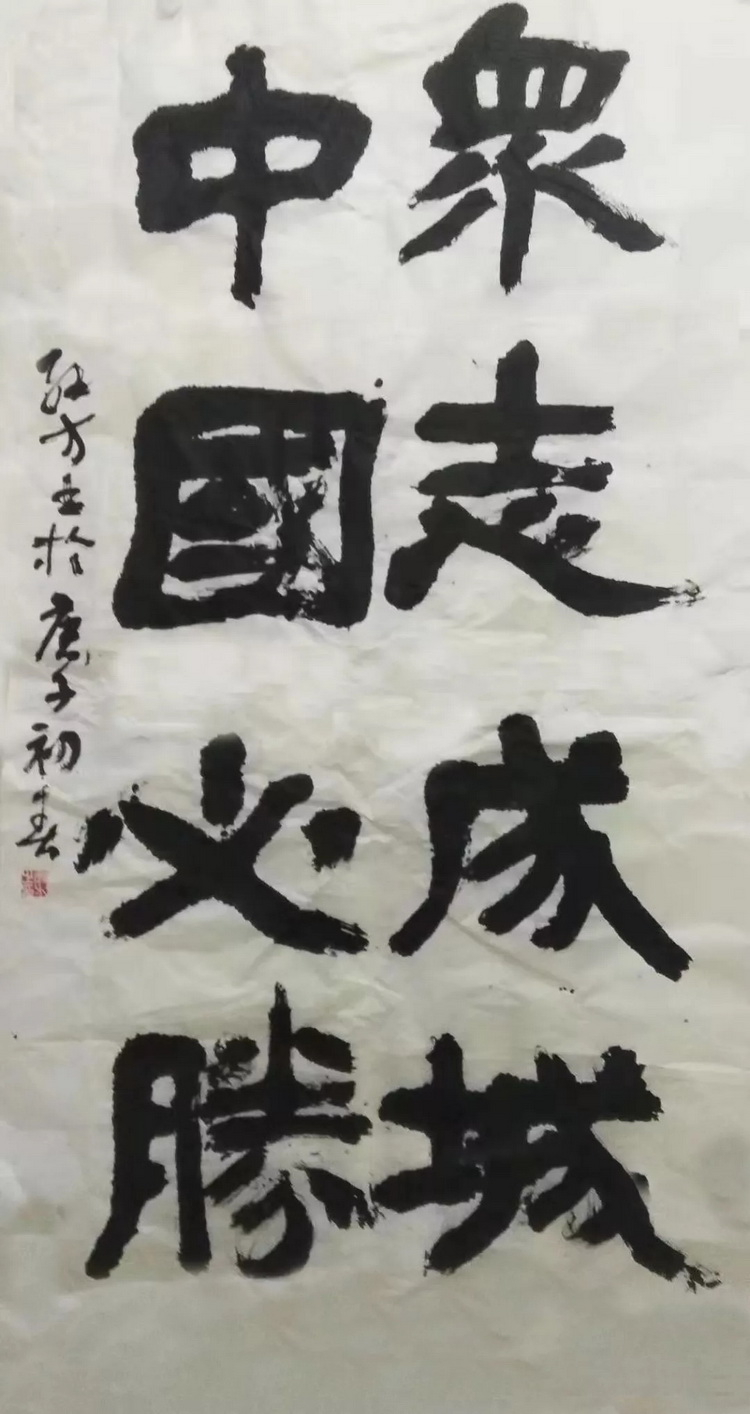 衆志成城
中國必勝
方书於庚子初春